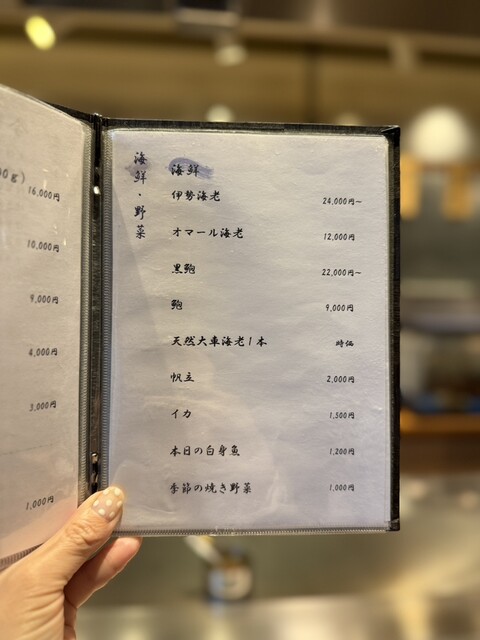 0g)
16,000円
10,000円
9,000円
4,000円
3,000円
1,000円
海鮮 野菜
海鮮
伊勢海老 24,000円~
オマール海老 12,000円
黒鮑 22,000円~
鮑 9,000円
天然大車海老1本 時価
帆立 2,000円
イカ 1,500円
本日の白身魚 1,200円
季節の焼き野菜 1,000円